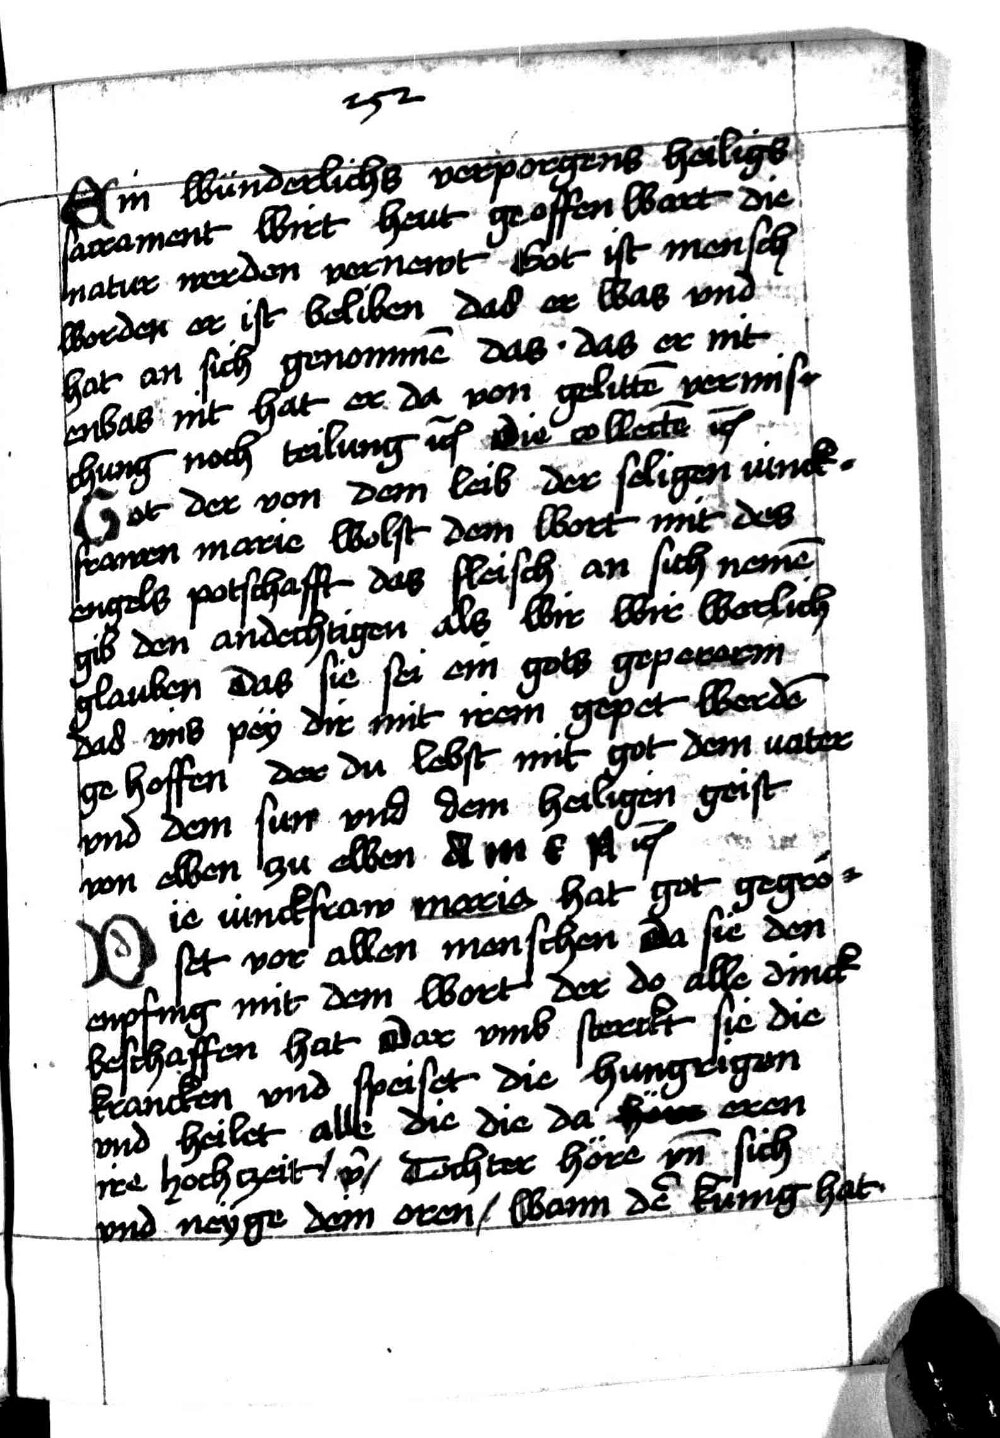 252
Ein wünderlichs verporgens heiligs
sacrament wirt heut geoffenwart die
natur werden vernewt Got ist mensch
worden er ist beliben das er was vnd
hat an sich genommē das · das er nit
enwas nit hat er da von gelittē vermis-
chung noch teilung Die collectē
Got der von dem leib der seligen iunck-
frawen marie wolst dem wort mit des
engels potschafft das fleisch an sich nemē
gib den andechtigen als wir wir werlich
glauben das sie sei ein gots gepererin
das vns pey dir mit irem gepet werdē
geholffen der du lebst mit got dem vater
vnd dem sun vnd dem heiligen geist
von ewen zu ewen AMEN
Die iunckfraw maria hat got gegrö-
set vor allen menschen Da sie den
enpfing mit dem wort der do alle dinck
beschaffen hat Dar vmb sterckt sie die
krancken vnd speiset die hungrigen
vnd heilet alle die die da eren
ire hochczeit / v̄ / Tochter höre vn̄ sich
vnd neyge dein oren / wann dē kunig hat